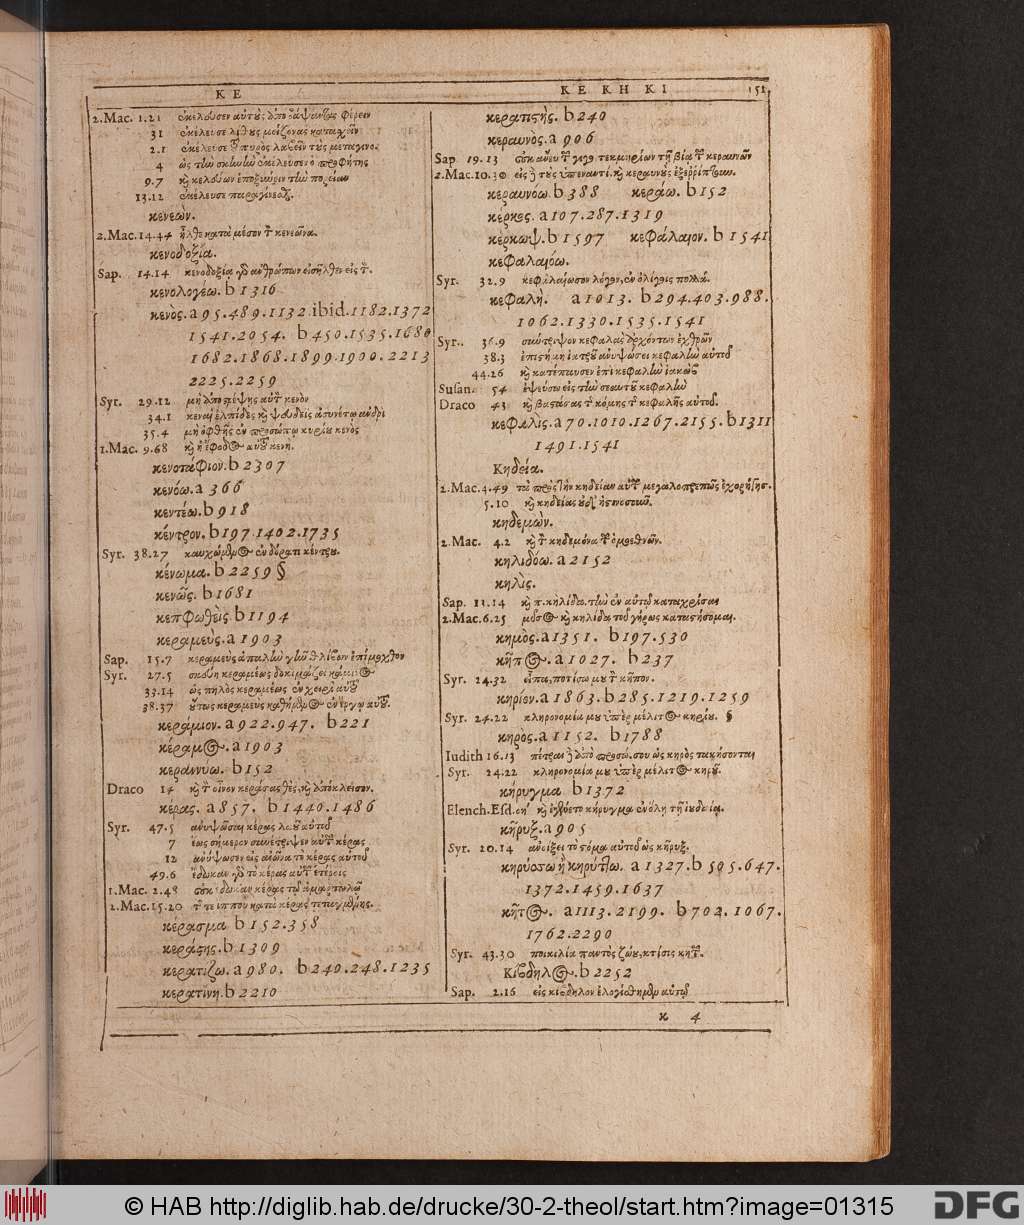 Κ Ε
2.Mac. 1.21 ἐκέλευσεν αὐτοὺς φέρειν
31 ἐκέλευσε λίθους μείζονας
2.1 ἐκέλευσε τοῦ πυρὸς λαβεῖν τοὺς
4 ὡς τὴν σκηνὴν ἐκέλευσεν ὁ προφήτης
9.7 καὶ κελεύων τὴν πορείαν
13.12 ἐκέλευσε
κενεών.
2.Mac.14.44 ἦλθε κατὰ μέσον τὸν κενεῶνα.
κενοδοξία.
Sap. 14.14 κενοδοξίᾳ γὰρ ἀνθρώπων εἰσῆλθεν εἰς τὸν.
κενολογέω. b 1316
κενὸς. a 95.489.1132. ibid. 1182.1372
1541.2054. b 450.1535.1680
1682.1868.1899.1900.2213
2225.2259
Syr. 29.12 μὴ κενὸν
34.1 κεναὶ ἐλπίδες καὶ ψευδεῖς ἀσυνέτῳ ἀνδρὶ
35.4 μὴ ὀφθῇς ἐν προσώπῳ κυρίου κενὸς
1.Mac. 9.68 καὶ ἡ ἔφοδος αὐτοῦ κενή.
κενοτάφιον. b 2307
κενόω. a 366
κεντέω. b 918
κέντρον. b 197.1402.1735
Syr. 38.27 καυχώμενος ἐν δόρατι κέντρου.
κένωμα. b 2259 §
κενῶς. b 1681
κεπφωθεὶς b 1194
κεραμεὺς. a 1903
Sap. 15.7 κεραμεὺς ἁπαλὴν γῆν θλίβων ἐπίμοχθον
Syr. 27.5 σκεύη κεραμέως δοκιμάζει κάμινος
33.14 ὡς πηλὸς κεραμέως ἐν χειρὶ αὐτοῦ
38.37 οὕτως κεραμεὺς καθήμενος ἐν ἔργῳ αὐτοῦ.
κεράμιον. a 922.947. b 221
κέραμος. a 1903
κεραννυω. b 152
Draco 14 καὶ τὸν οἶνον κεράσασθες, καὶ ἀπόκλεισον.
κερας. a 857. b 1440.1486
Syr. 47.5 ἀνυψῶσαι κέρας λαοῦ αὐτοῦ
7 ἕως σήμερον συνέτριψεν αὐτῶν κέρας
12 ἀνύψωσεν εἰς αἰῶνα τὸ κέρας αὐτοῦ
49.6 ἔδωκαν γὰρ τὸ κέρας αὐτῶν ἑτέροις
1.Mac. 2.48 οὐκ ἔδωκαν κέρας τῷ ἁμαρτωλῷ
2.Mac.15.20 τῆς τε ἵππου κατὰ κέρας τεταγμένης.
κέρασμα b 152.358
κεράστης. b 1309
κερατιζω. a 980. b 240.248.1235
κερατινη. b 2210
Κ Ε Κ Η Κ Ι 151
κερατιστὴς. b 240
κεραυνὸς. a 906
Sap. 19.13 οὐκ ἄνευ τῶν τεκμηρίων τῇ βίᾳ τῶν κεραυνῶν
2.Mac.10.30 εἰς δὲ τοὺς ὑπεναντί. καὶ κεραυνοὺς ἐξερρίπτουν.
κεραυνόω. b 388 κεράω. b 152
κέρκος. a 107.287.1319
κέρκωψ. b 1597 κεφάλαιον. b 1541
κεφαλαιόω.
Syr. 32.9 κεφαλαίωσον λόγον, ἐν ὀλίγοις πολλά.
κεφαλὴ. a 1013. b 294.403.988.
1062.1330.1535.1541
Syr. 36.9 σύντριψον κεφαλὰς ἀρχόντων ἐχθρῶν
38.3 ἐπιστήμη ἰατροῦ ἀνυψώσει κεφαλὴν αὐτοῦ
44.26 καὶ κατέπαυσεν ἐπὶ κεφαλὴν ἰακώβ
Susan. 54 ἔψευσω εἰς τὴν σεαυτοῦ κεφαλὴν
Draco 43 καὶ βαστάσας τῆς κόμης τῆς κεφαλῆς αὐτοῦ.
κεφαλὶς. a 70.1010.1267.2155. b 1311
1491.1541
Κηδεία.
2.Mac.4.49 τὰ πρὸς τὴν κηδείαν αὐτῶν μεγαλοπρεπῶς ἐχορήγησ.
5.10 καὶ κηδείας οὐδ' ἡστινοσοῦν.
κηδεμὼν.
2.Mac. 4.2 καὶ τὸν κηδεμόνα τῶν ὁμοεθνῶν.
κηλιδόω. a 2152
κηλὶς.
Sap. 11.14 κηλίδων τὴν ἐν αὐτῷ καταχρίσας
2.Mac.6.25 μύσος καὶ κηλίδα τοῦ γήρως καταστήσομαι.
κημὸς. a 1351. b 197.530
κῆπος. a 1027. b 237
Syr. 24.32 εἶπα, ποτίσω μου τὸν κῆπον.
κηρίον. a 1863. b 285.1219.1259
Syr. 24.22 κληρονομία μου ὑπὲρ μέλιτος κηρίου. §
κηρὸς. a 1152. b 1788
Iudith 16.13 πέτραι δ' ἀπὸ προσώ. σου ὡς κηρὸς τακήσονται
Syr. 24.22 κληρονομία μου ὑπὲρ μέλιτος κηροῦ.
κήρυγμα b 1372
Elench.Esd. καὶ ἐγένετο κήρυγμα ἐν ὅλῃ τῇ ἰουδαίᾳ.
κῆρυξ. a 905
Syr. 20.14 ἀνοίξει τὸ στόμα αὐτοῦ ὡς κῆρυξ.
κηρύσσω ἢ κηρύττω. a 1327. b 505.647.
1372.1459.1637
κῆτος. a 1113.2199. b 702.1067.
1762.2290
Syr. 43.30 ποικιλία παντὸς ζώου, κτίσις κητῶν.
Κίβδηλος. b 2252
Sap. 2.16 εἰς κίβδηλον ἐλογίσθημεν αὐτῷ
κ 4
© HAB http://diglib.hab.de/drucke/30-2-theol/start.htm?image=01315
DFG